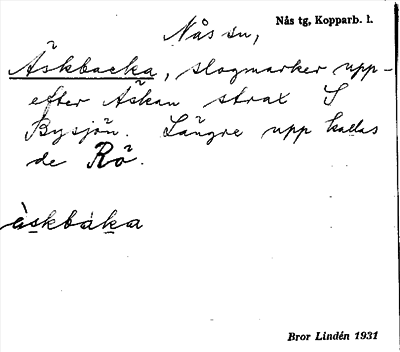 Nås sn,
Nås tg, Kopparb. l.
Äskbacka, slogmarker upp-
efter Äskan strax S
Bysjön. Längre upp kallas
de Rö.
äskbáka
Bror Lindén 1931